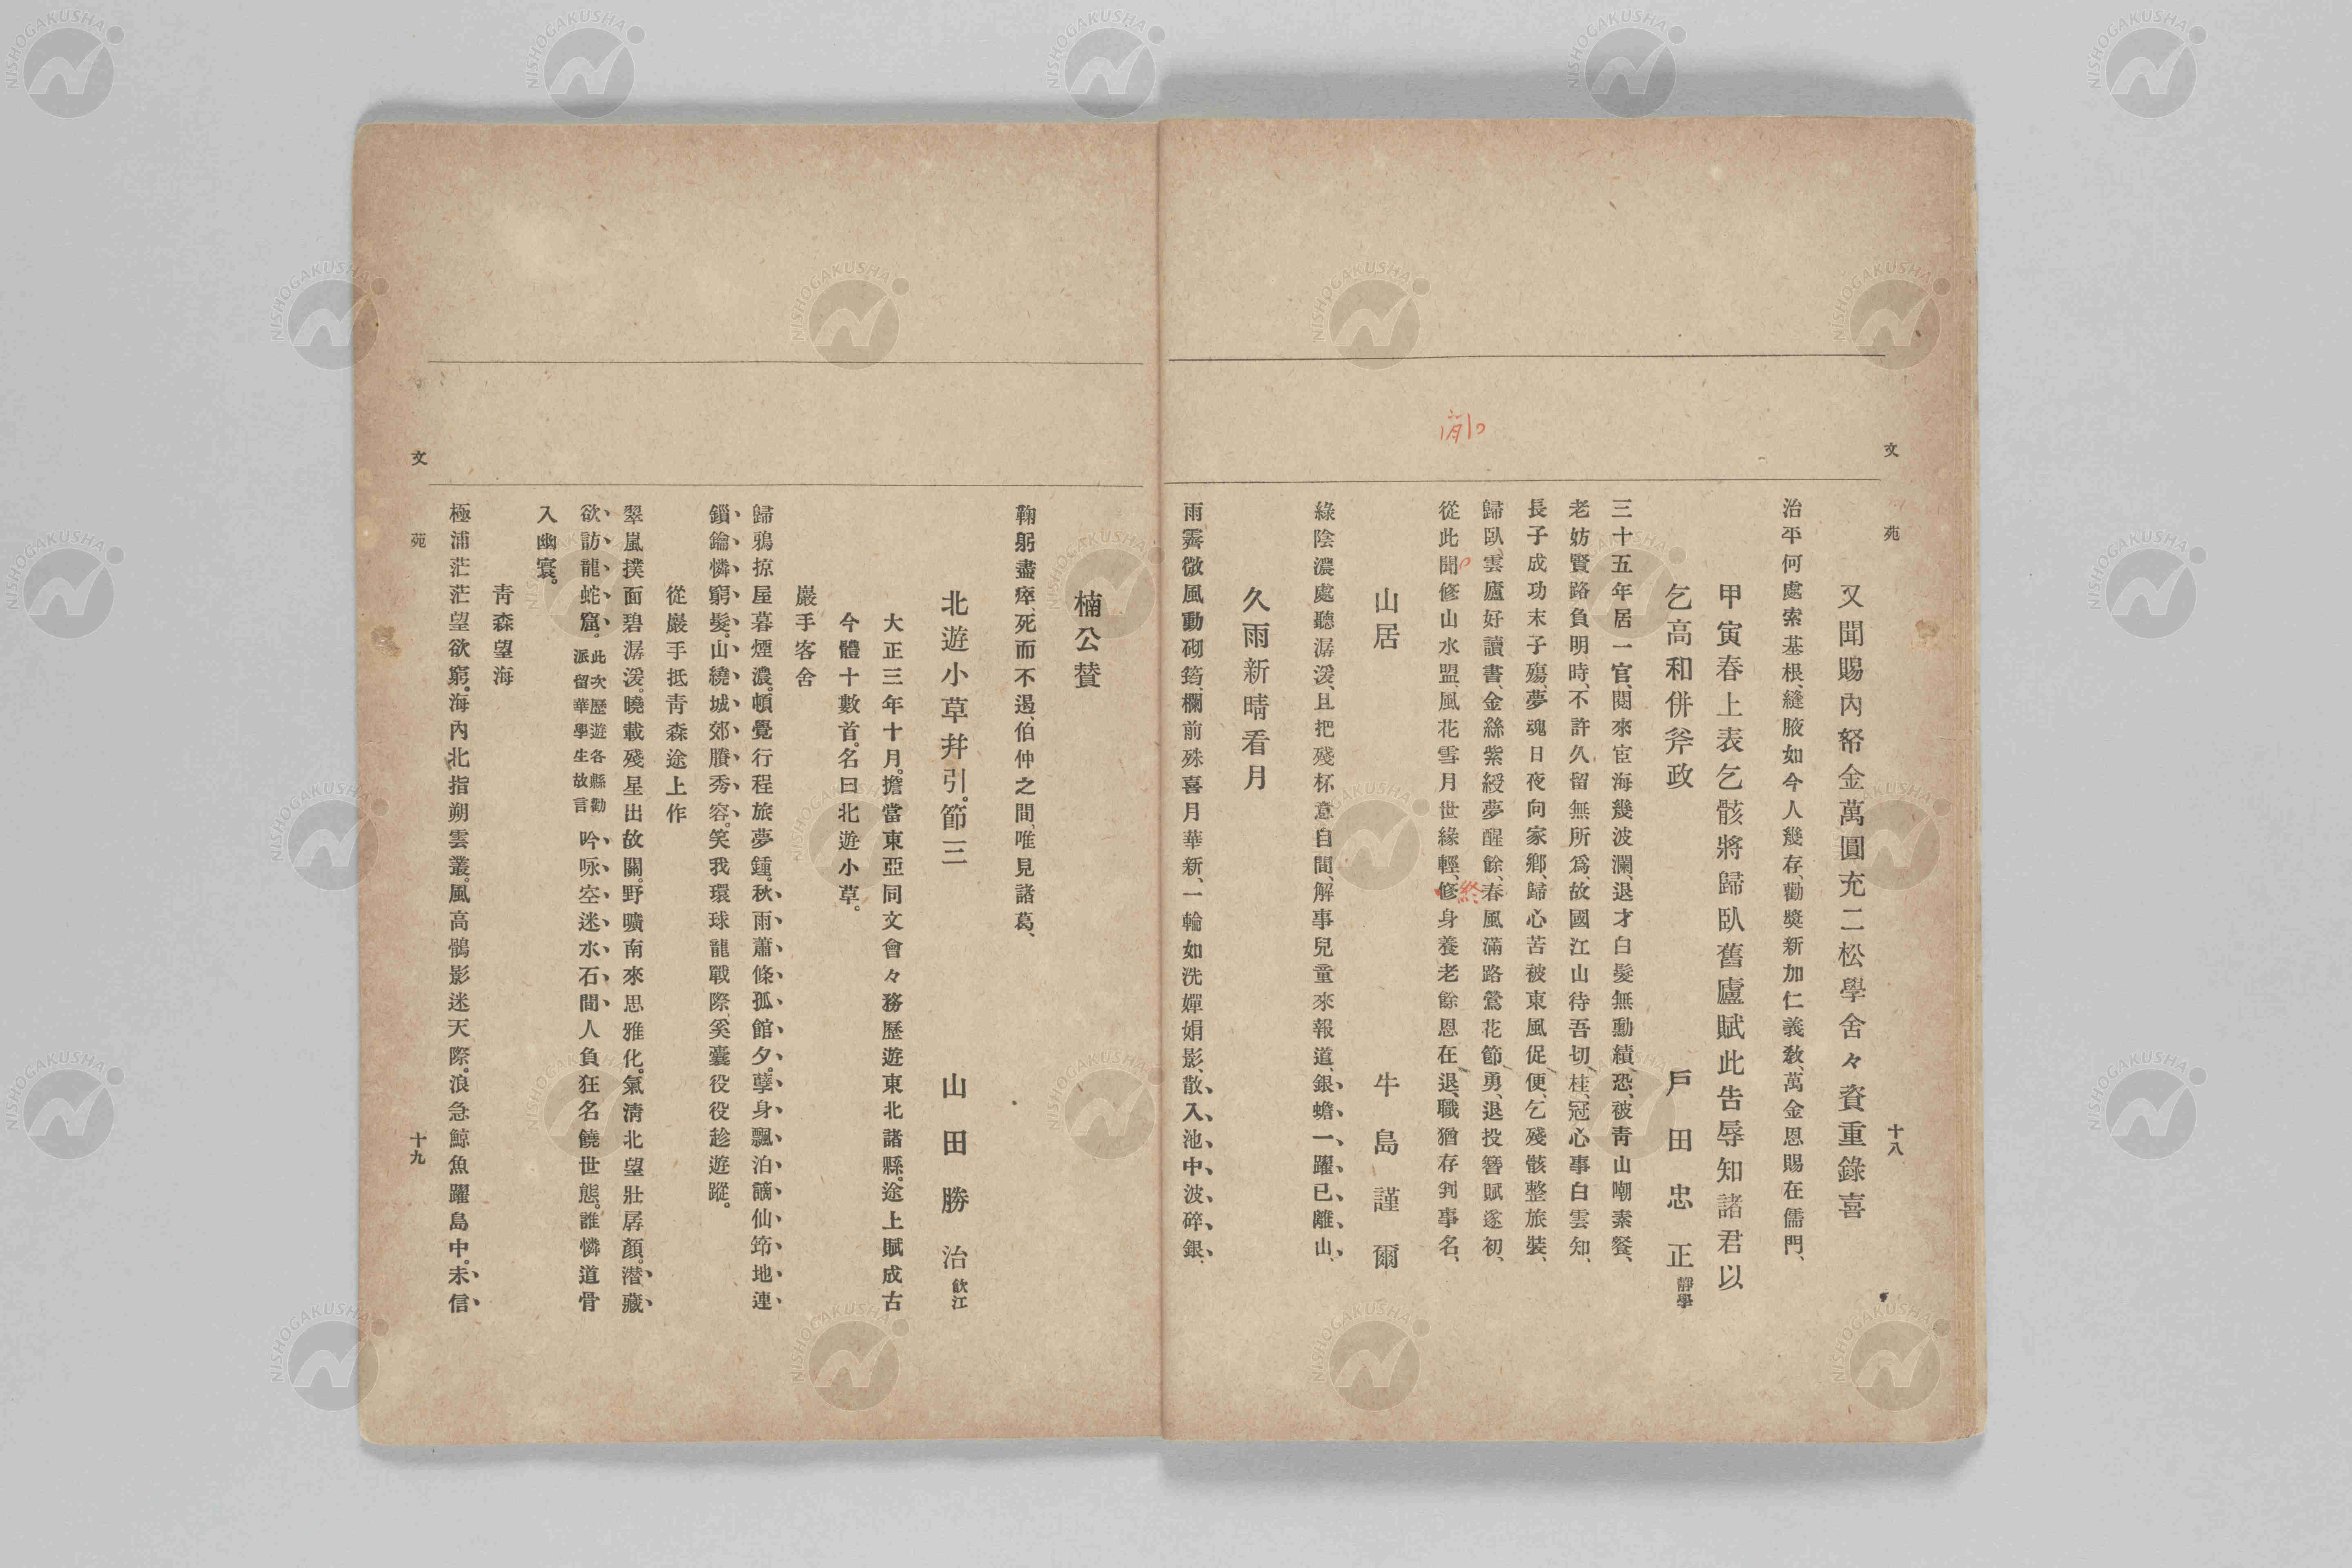 文苑
十八
又聞賜內帑金萬圓充二松學舍々資重錄喜
治平何處索基根、縫腋如今人幾存、勸奬新加仁義敎、萬金恩賜在儒門、
甲寅春上表乞骸將歸臥舊廬賦此告辱知諸君以
乞高和併斧政
戶田忠正 靜學
三十五年居一官、閱來宦海幾波瀾、退才白髮無勳績、恐被靑山嘲素餐、
老妨賢路負明時、不許久留無所爲、故國江山待吾切、桂冠心事白雲知、
長子成功末子殤、夢魂日夜向家鄉、歸心苦被東風促、便乞殘骸整旅裝、
歸臥雲廬好讀書、金絲紫綬夢醒餘、春風滿路鶯花節、勇退投簪賦遂初、
從此聞修山水盟、風花雪月世緣輕、修身養老餘恩在、退職猶存判事名、
終
山居
牛島謹爾
綠陰濃處聽潺湲、且把殘杯意自閒、解事兒童來報道、銀蟾一躍已離山、
久雨新晴看月
雨霽微風動砌筠、欄前殊喜月華新、一輪如洗嬋娟影、散入池中波碎銀、
楠公賛
鞠躬盡瘁、死而不遏、伯仲之間、唯見諸葛、
北遊小草幷引。節三
山田勝治 飮江
大正三年十月。擔當東亞同文會々務歷遊東北諸縣。途上賦成古
今體十數首。名曰北遊小草。
巖手客舍
歸鴉掠屋暮煙濃。頓覺行程旅夢鍾。秋雨蕭條孤館夕。孽身飄泊謫仙筇。地連
鎖鑰憐窮髮。山繞城郊賸秀容。笑我環球龍戰際。奚囊役役趁遊蹤。
從巖手抵靑森途上作
翠嵐撲面碧潺湲。曉載殘星出故關。野曠南來思雅化。氣淸北望壯孱顏。潛藏
欲訪龍蛇窟。此次歷遊各縣勸派留華學生故言吟咏空迷水石間。人負狂名饒世態。誰憐道骨
入幽寰。
靑森望海
極浦茫茫望欲窮。海內北指朔雲叢。風高鶻影迷天際。浪急鯨魚躍島中。未信
文苑
十九